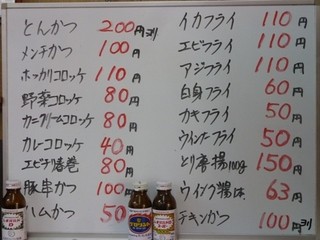 とんかつ 200円ヨリ
メンチかつ 100円
ホッカリコロッケ 110円
野菜コロッケ 80円
カニクリームコロッケ 80円
カレーコロッケ 40円
エビチリ春巻 80円
豚串かつ 100円
ハムかつ 50
イカフライ 110円
エビフライ 110円
アジフライ 110円
白身フライ 60円
カキフライ 50円
ウインナーフライ 50円
とり唐揚100g 150円
63円
チキンかつ 100円ヨリ